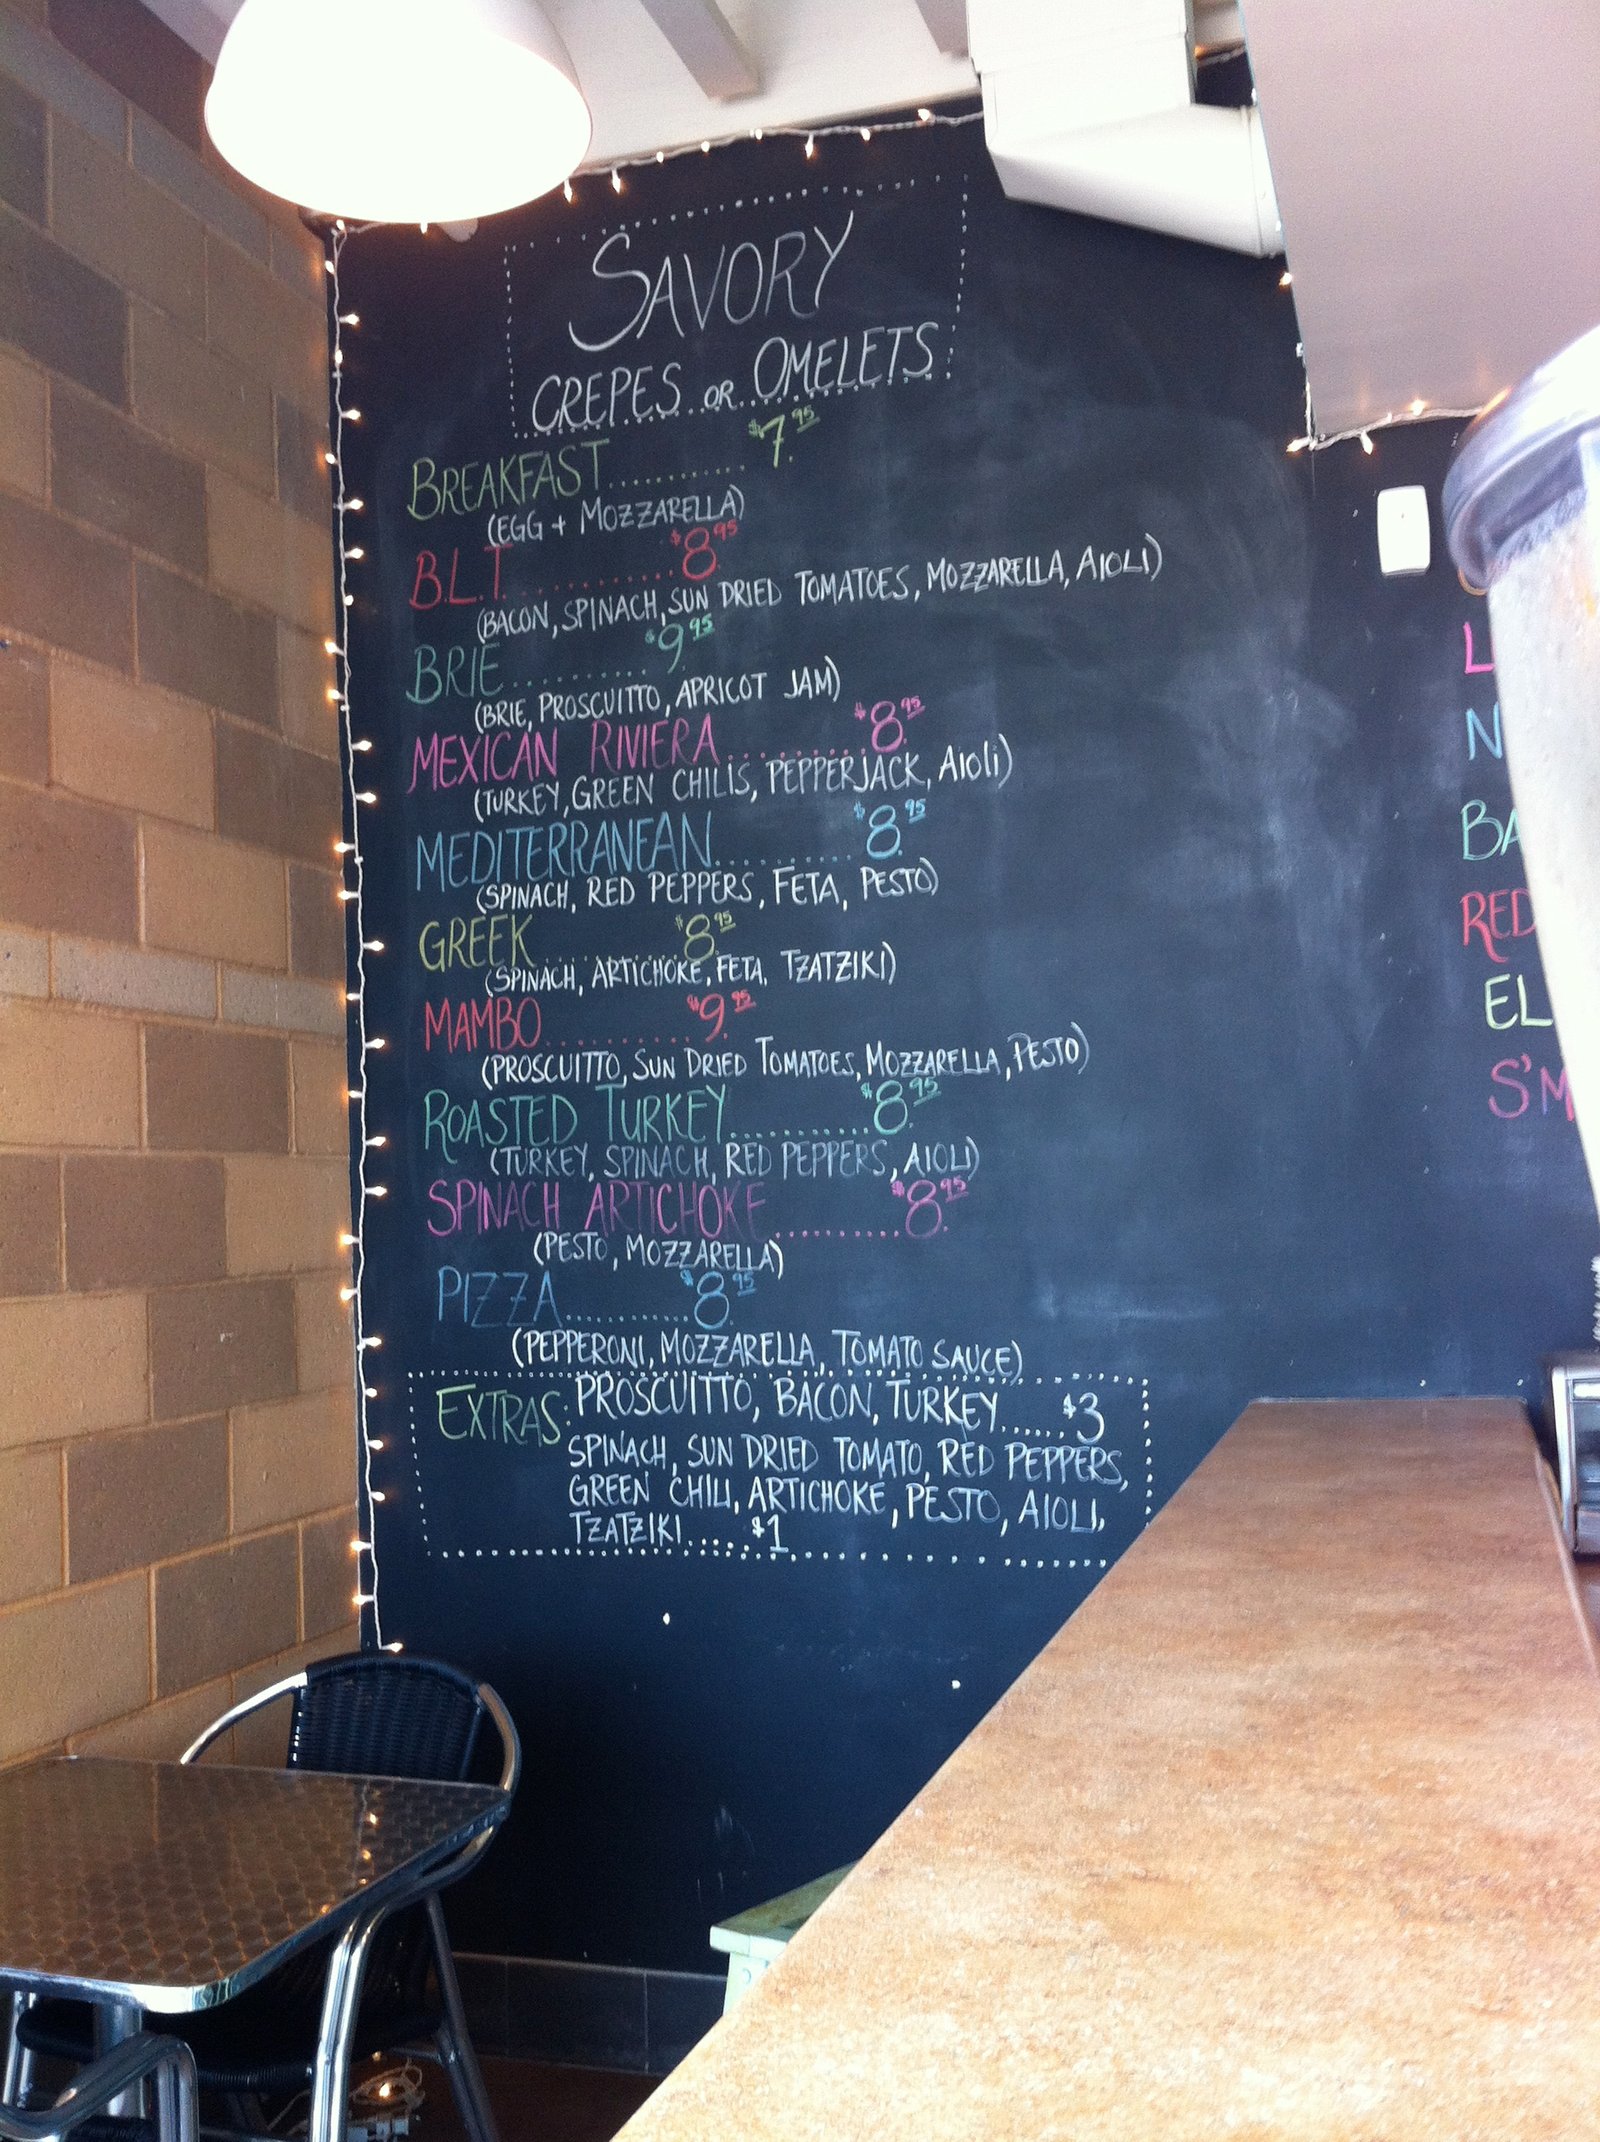 SAVORY
CREPES OR OMELETS
BREAKFAST........... $7.95
(EGG + MOZZARELLA)
B.L.T............ $8.95
(BACON, SPINACH, SUN DRIED TOMATOES, MOZZARELLA, AIOLI)
BRIE.......... $9.95
(BRIE, PROSCUITTO, APRICOT JAM)
MEXICAN RIVIERA.......... $8.95
(TURKEY, GREEN CHILIS, PEPPERJACK, AIOLI)
MEDITERRANEAN.......... $8.95
(SPINACH, RED PEPPERS, FETA, PESTO)
GREEK.......... $8.95
(SPINACH, ARTICHOKE, FETA, TZATZIKI)
MAMBO........... $9.95
(PROSCUITTO, SUN DRIED TOMATOES, MOZZARELLA, PESTO)
ROASTED TURKEY........... $8.95
(TURKEY, SPINACH, RED PEPPERS, AIOLI)
SPINACH ARTICHOKE......... $8.95
(PESTO, MOZZARELLA)
PIZZA........... $8.95
(PEPPERONI, MOZZARELLA, TOMATO SAUCE)
EXTRAS: PROSCUITTO, BACON, TURKEY...... $3
SPINACH, SUN DRIED TOMATO, RED PEPPERS,
GREEN CHILI, ARTICHOKE, PESTO, AIOLI,
TZATZIKI...... $1
RED
EL
S'M